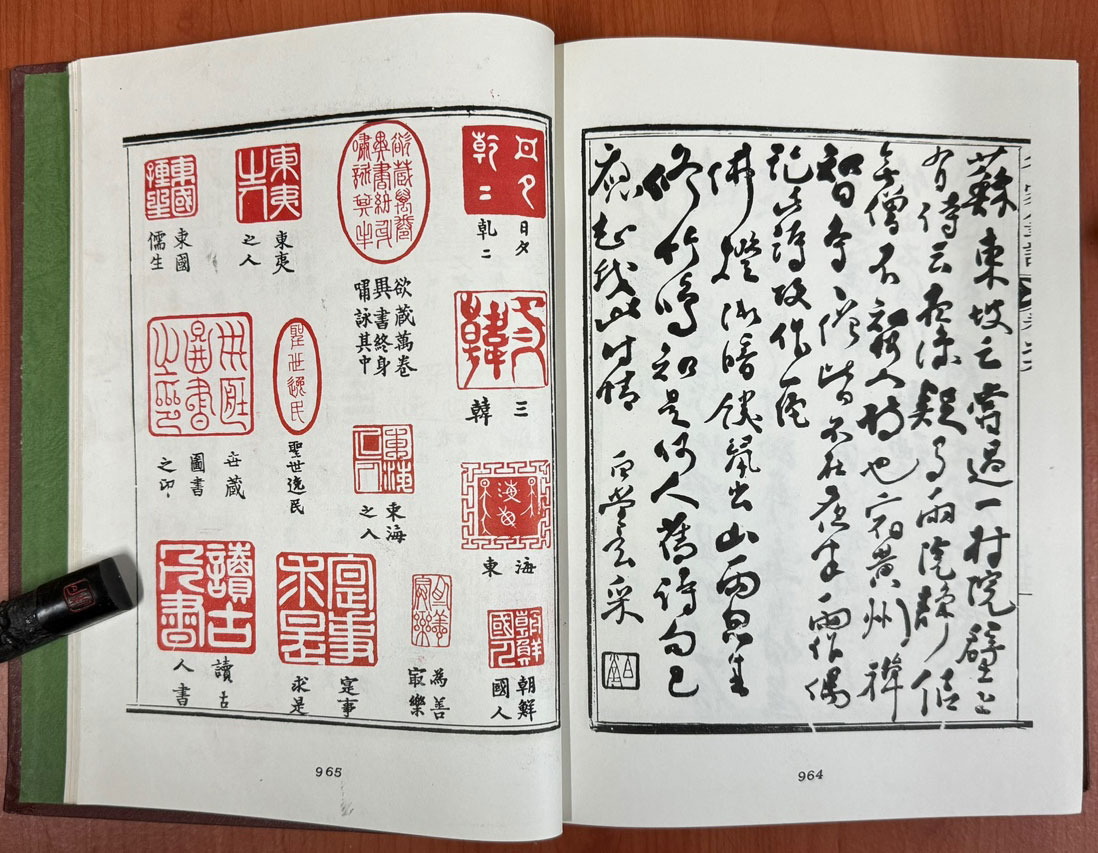 蘇東坡云嘗過一村院壁上
有詩云夜涼疑有雨院靜似
無僧不知何人詩也宿黃州禪
智寺寺僧皆不在夜半雨作偶
記此詩故作一絕
佛燈漸暗饑鼠出山雨忽來
修竹鳴知是何人舊詩句已
應知我此時情
964
日夕
乹二
三
韓
海
東
朝鮮
國人
欲藏萬卷
異書終身
嘯詠其中
東海
之人
為善
冣樂
東夷
之人
聖世逸民
寔事
求是
東國
儒生
世藏
圖書
之印
讀古
人書
965